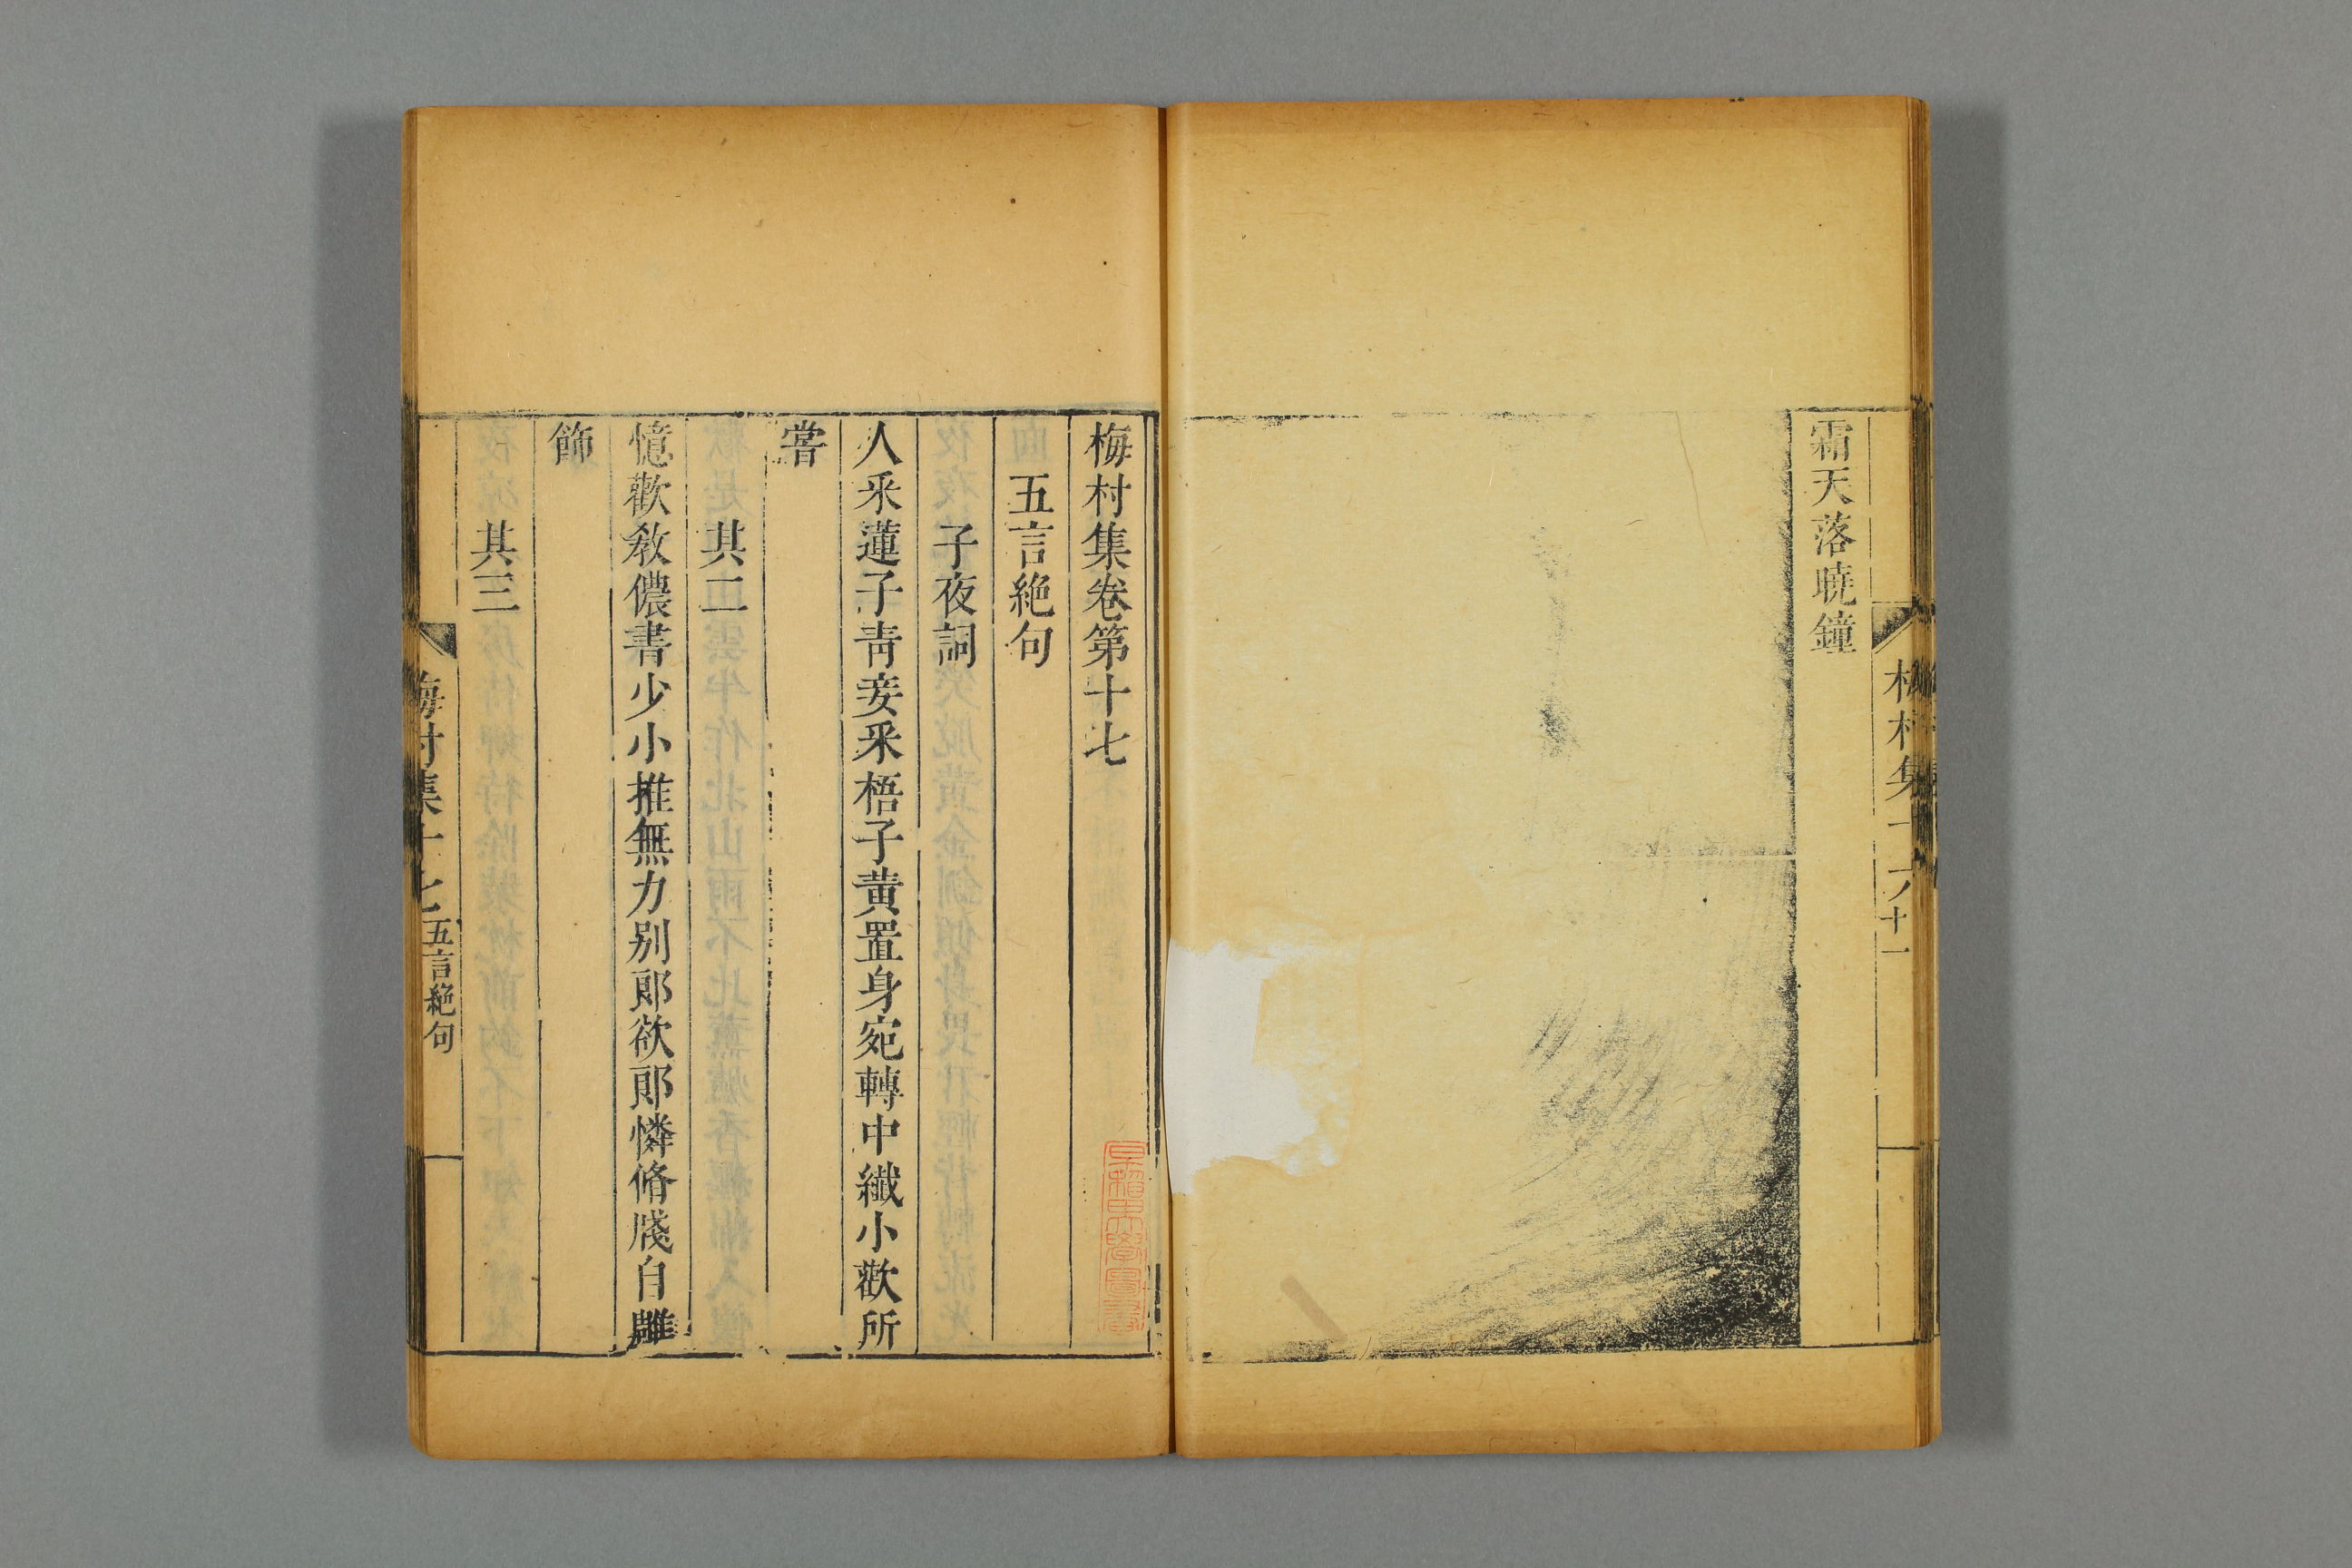 霜天落曉鐘
梅村集十六
十一
梅村集卷第十七
五言絕句
子夜詞
人采蓮子青妾采梧子黃置身宛轉中纖小歡所
嘗
其二
憶歡教儂書少小推無力别郎欲郎憐脩牋自雕
飾
其三
梅村集十七
五言絕句